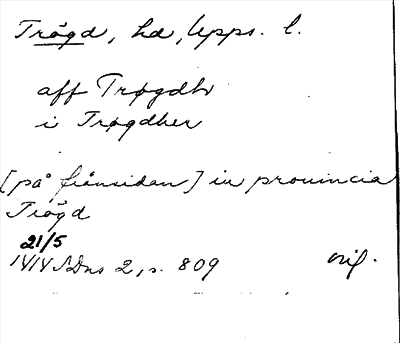 Trögd, hd, Upps. l.
aff Trøgdh
i Trøgdher
[på frånsidan] in prouincia
Trögd
21/5
1414 SDns 2, s. 809 orig.